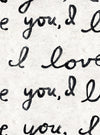 e you, I l
I love
e you, I l
I love
e you, I l
I love